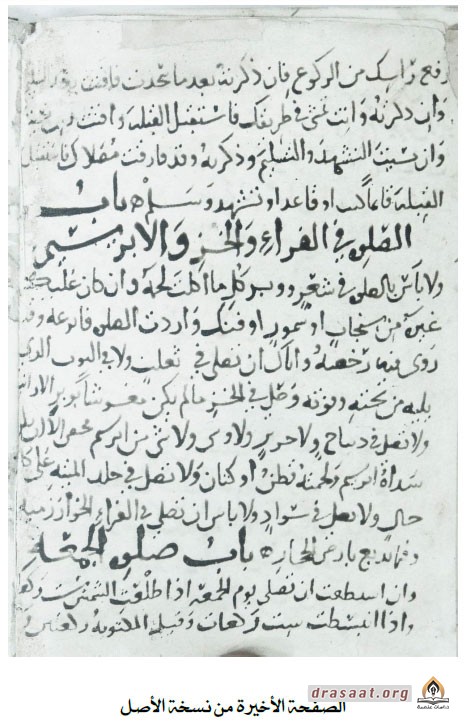 رفع رأسك من الركوع فان ذكرته بعد ما سجدت فاقنت
وان ذكرته وانت تمشى فى طريقك فاستقبل القبله واقنت
وان نسيت التشهد والتسليم وذكرته وقد فارقت مصلاك فاستقبل
القبله قائما كنت او قاعدا وتشهد وسلم باب
الصلوة فى الفراء والخز والابريسم
ولا باس بالصلوة فى شعر ووبر كل ما اكلت لحمه وان كان عليك
غيره من سنجاب او سمور او فنك واردت الصلوة فانزعه وقد
روى فيه رخصة واياك ان تصلى فى ثعلب ولا فى الثوب الذى
يليه من تحته وفوقه وصل فى الخز ما لم يكن مغشوشا بوبر الارانب
ولا تصل فى ديباج ولا حرير ولا وشى ولا شى من ابريسم محض الا ان
سداه ابريسم ولحمته قطن او كتان ولا تصل فى جلد الميته على كل
حال ولا تصل فى سواد ولا باس ان تصلى فى الفراء الخوارزميه
وما يدبغ بارض الحجاز باب صلوة الجمعه
وان استطعت ان تصلى يوم الجمعه اذا طلعت الشمس ست ركعات
واذا انبسطت ست ركعات وقبل المكتوبه ركعتين
الصفحة الأخيرة من نسخة الأصل
drasaat.org